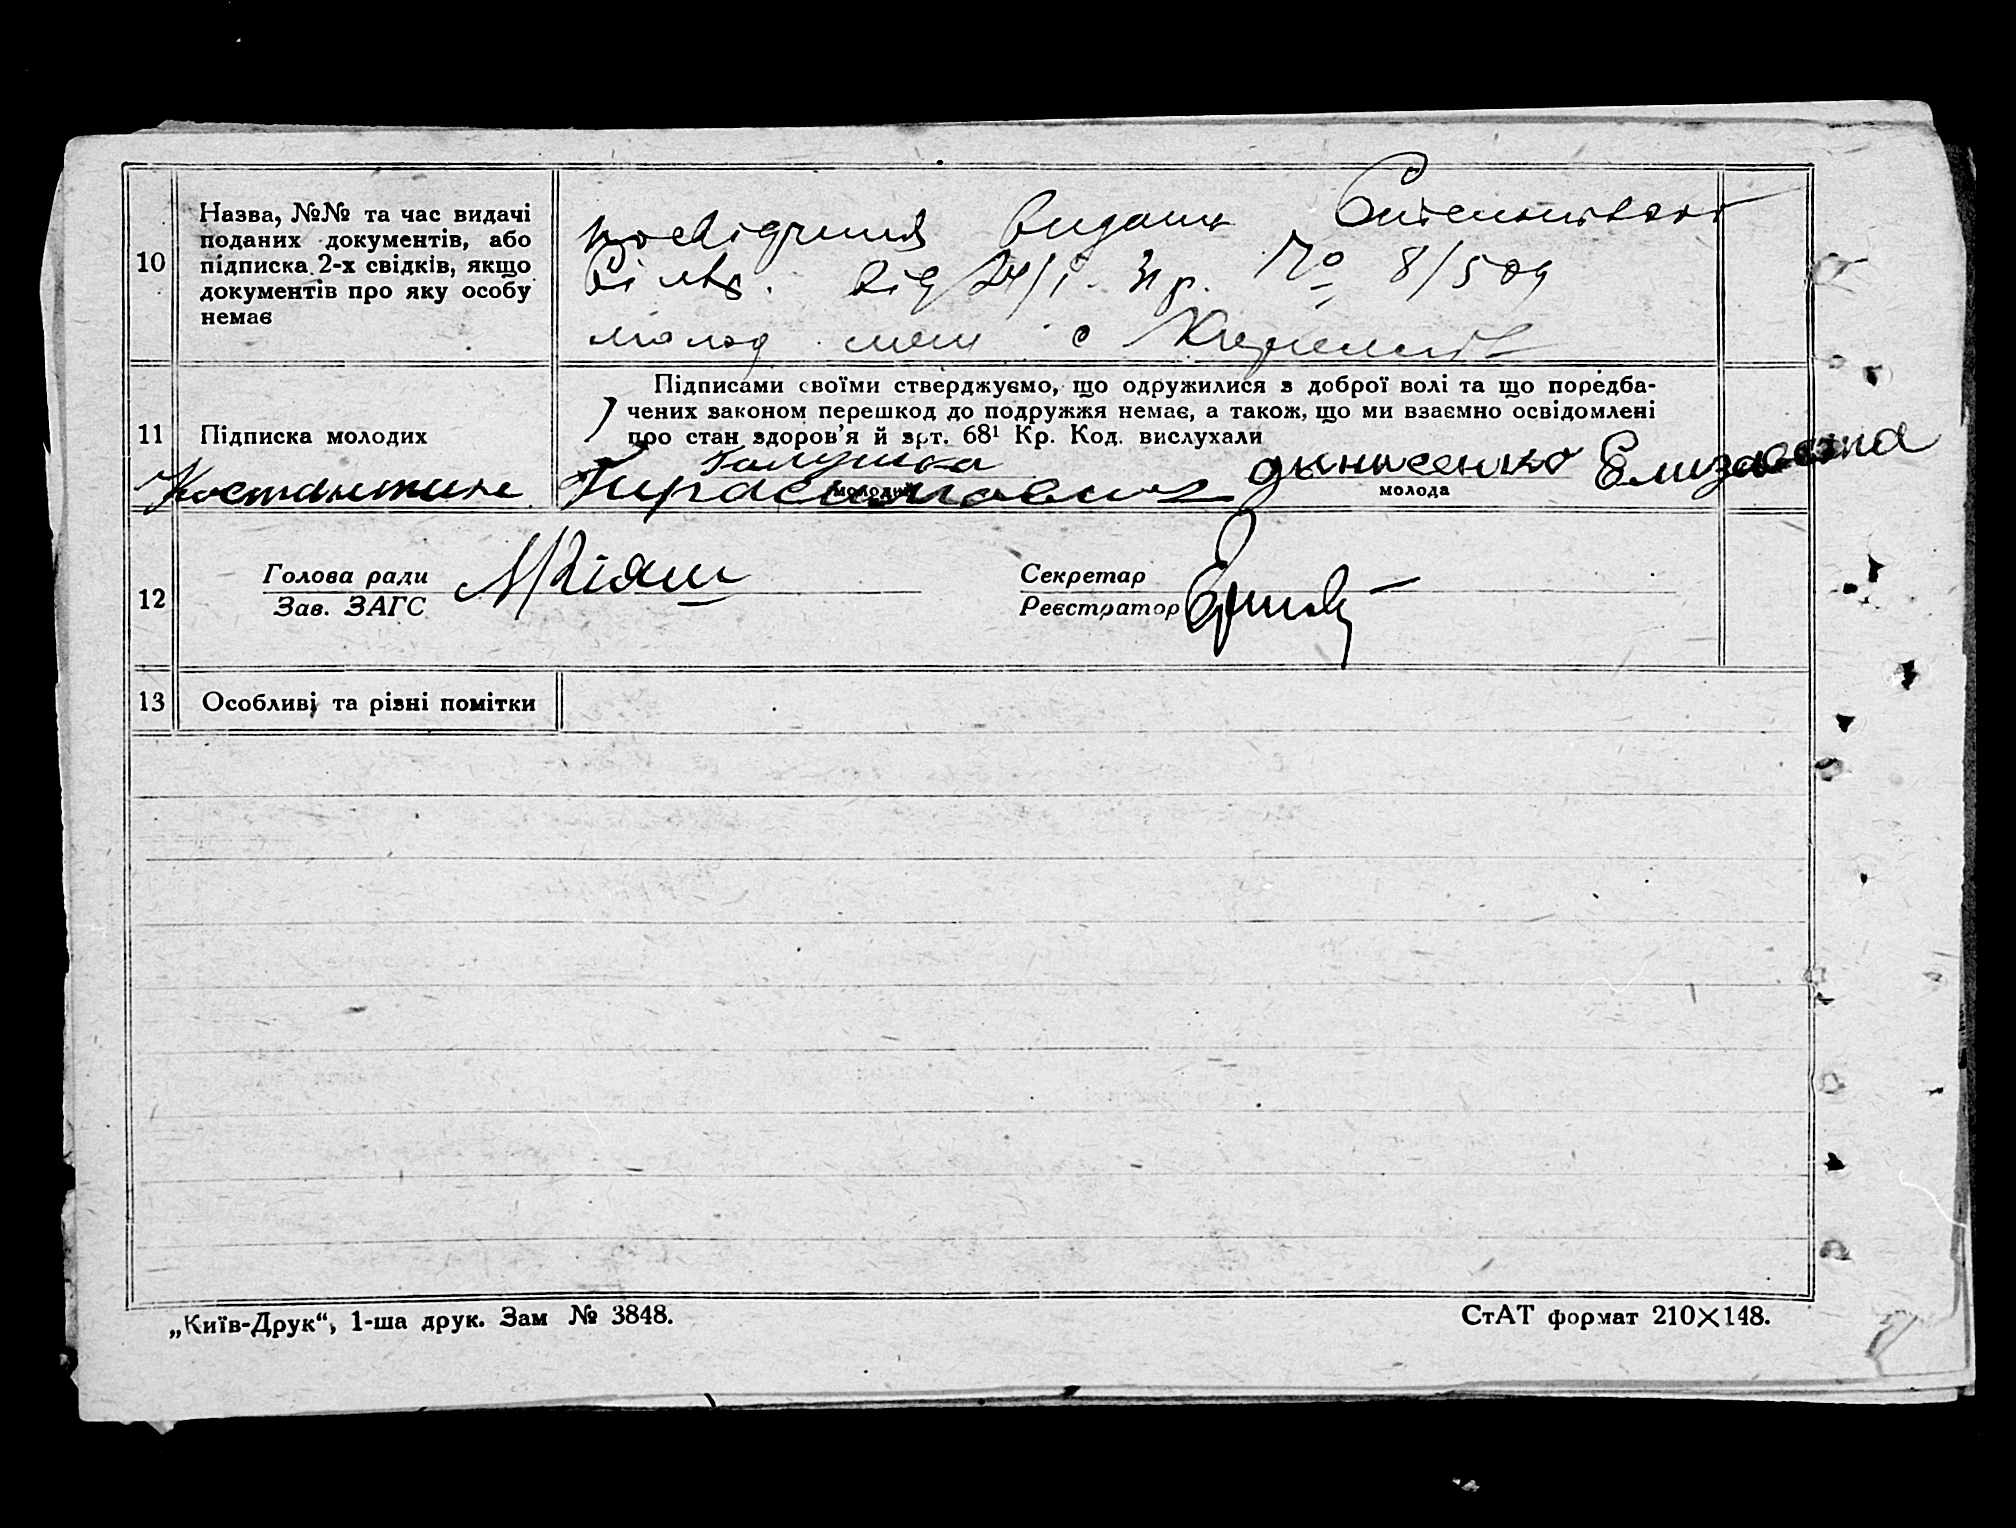 10
Назва, №№ та час видачі
поданих документів, або
підписка 2-х свідків, якщо
документів про яку особу
немає
посвідчення видани
від 24/I № 8/509
молод меш с
11
Підписка молодих
Підписами своїми стверджуємо, що одружилися з доброї волі та що поредба-
чених законом перешкод до подружжя немає, а також, що ми взаємно освідомлені
про стан здоров'я й арт. 68¹ Кр. Код. вислухали
Галушка
Костантин Тирасимович дынысенко Елизавета
молодий молода
12
Голова ради
Зав. ЗАГС
Секретар
Реєстратор
13
Особливі та різні помітки
„Київ-Друк“, 1-ша друк. Зам № 3848.
СтАТ формат 210×148.